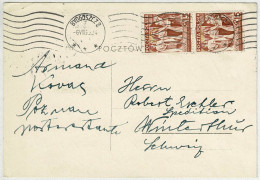 BYDGOSZCZ 2
POCZTÓW
Armand
Kovac
Poznan
posterestante
Herrn
Robert Eichler
Spedition
Winterthur
Schweiz